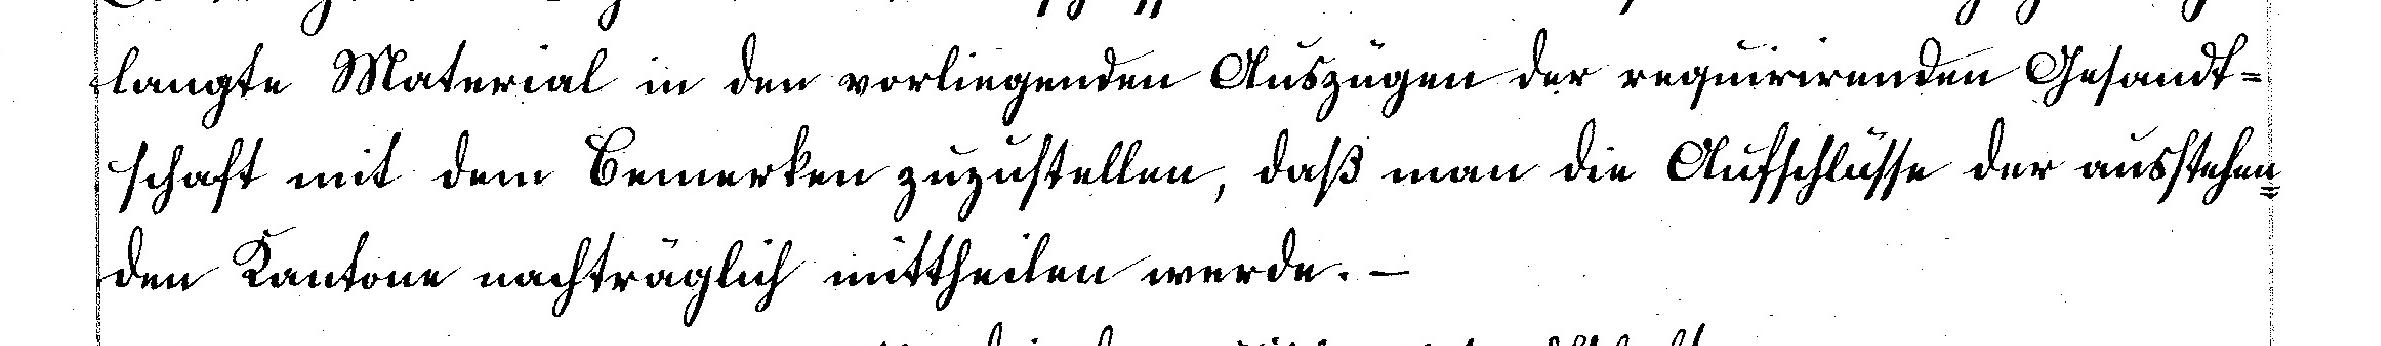 langte Material in den vorliegenden Auszügen der requirirenden Gesandt=
schaft mit dem Bemerken zuzustellen, daß man die Aufschlüsse der ausstehen=
den Kantone nachträglich mittheilen werde. –